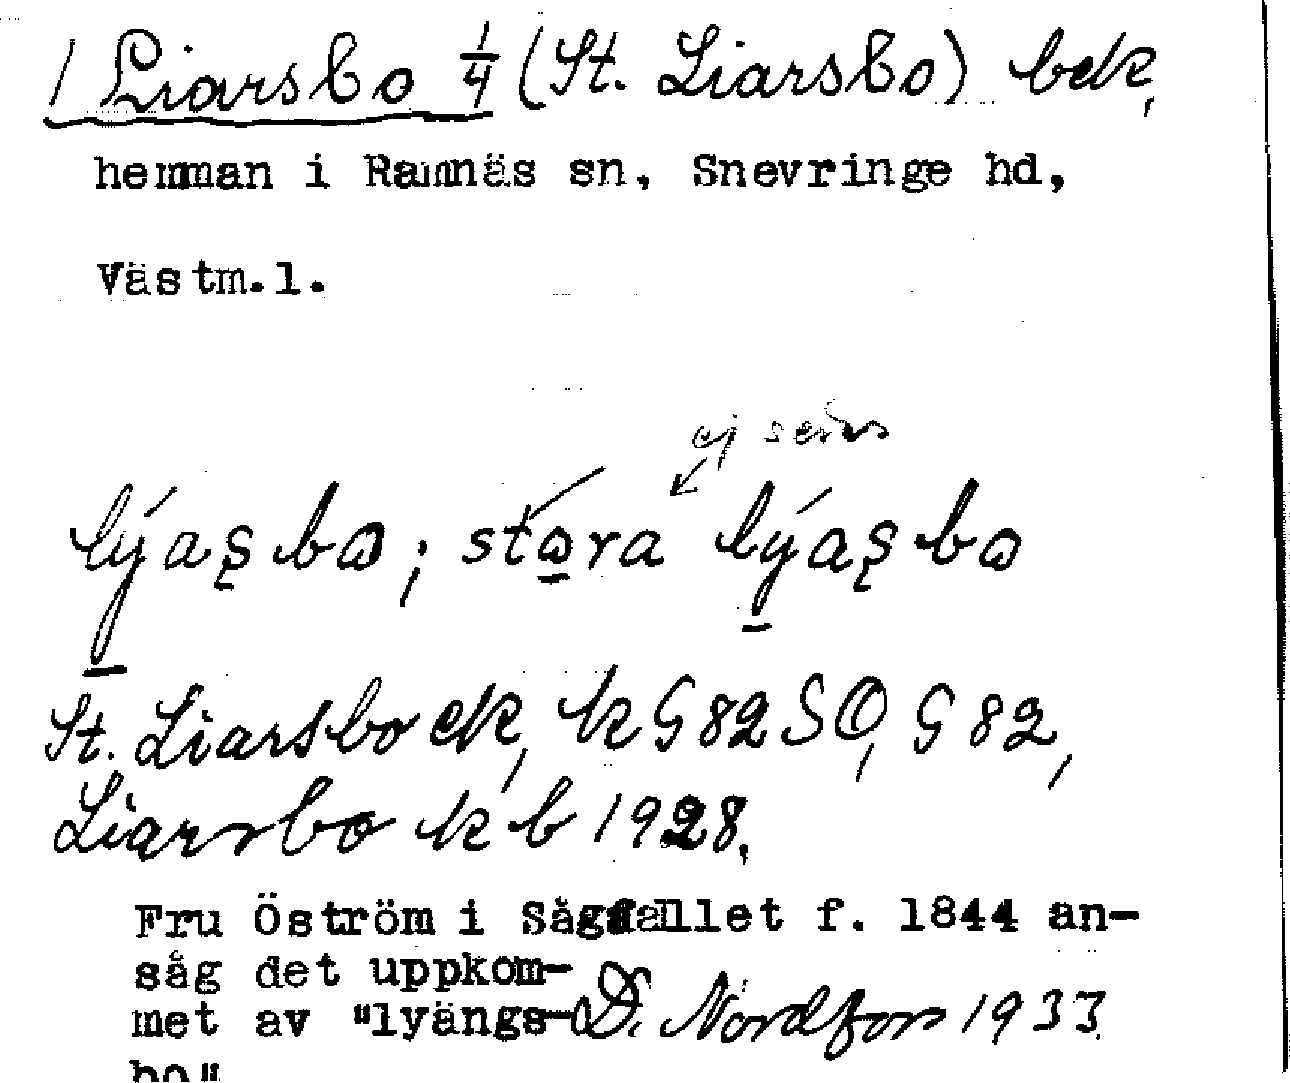 1 Liarsbo 1/4 (St. Liarsbo) bek,
hemman i Ramnäs sn, Snevringe hd,
Västm.l.
ej
lýas̨bo; stora lýas̨bo
St. Liarsbo ek, k G 82 SO, G 82,
Liarsbo k b 1928.
Fru Öström i Sågfallet f. 1844 an-
såg det uppkom-
met av "lyängs-
bo"
D. Nordfors 1933.